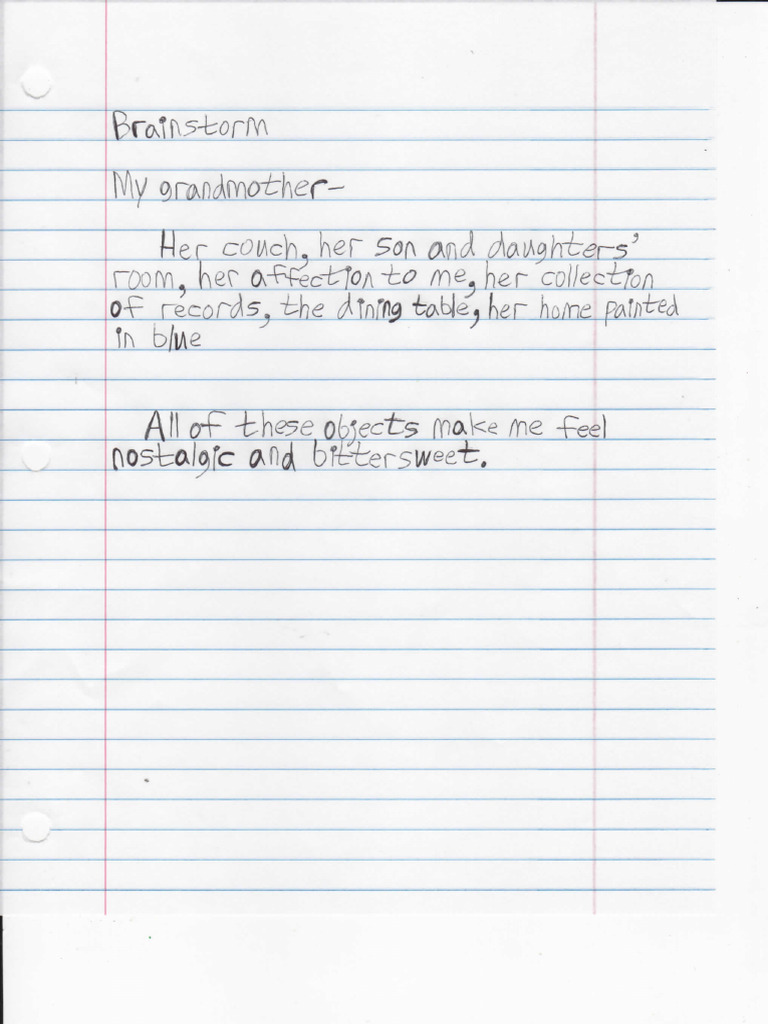 Brainstorm
My grandmother-
Her couch, her son and daughters'
room, her affection to me, her collection
of records, the dining table, her home painted
in blue
All of these objects make me feel
nostalgic and bittersweet.